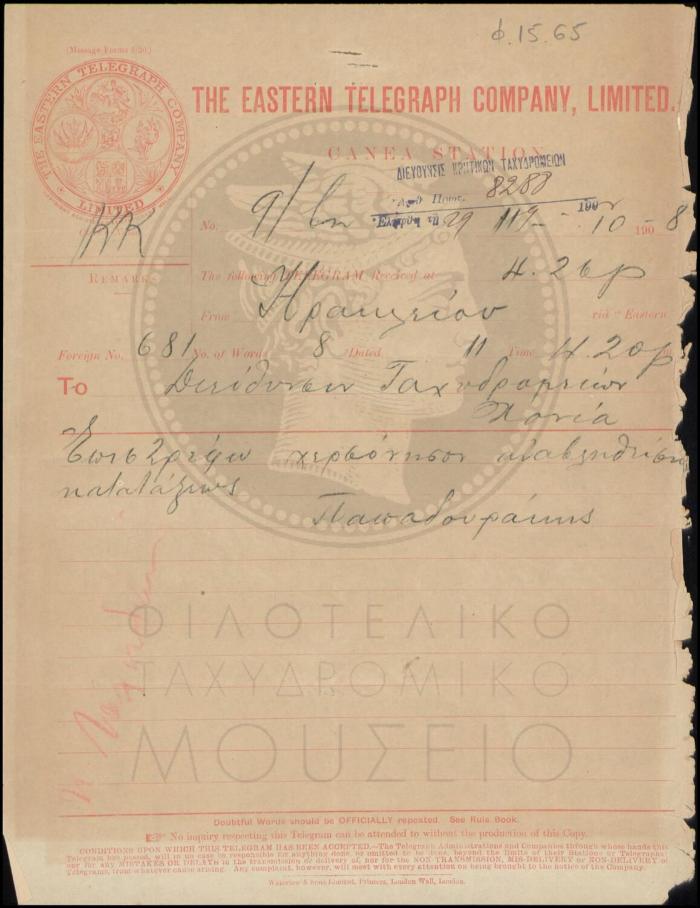 φ.15.65
(Message Forms 8/20.)
THE EASTERN TELEGRAPH COMPANY
LIMITED
THE EASTERN TELEGRAPH COMPANY, LIMITED.
CANEA STATION
ΔΙΕΥΘΥΝΣΙΣ ΚΡΗΤΙΚΩΝ ΤΑΧΥΔΡΟΜΕΙΩΝ
Αριθ. Πρωτ. 8288
190
No. 9/ 29 11 10 - 1908
KK
REMARKS
The following TELEGRAM Received at 4.26 p
From Ηρακλείου via "Eastern"
Foreign No. 681 No. of Words 8 Dated 11 Time 4.20 p m
To Διεύθυνσιν Ταχυδρομείων
Χανιά
Επιστρέφω χερσόνησον αναβληθείσης
κατατάξεως
Παπαδουράκης
ΦΙΛΟΤΕΛΙΚΟ
ΤΑΧΥΔΡΟΜΙΚΟ
ΜΟΥΣΕΙΟ
Doubtful Words should be OFFICIALLY repeated. See Rule Book.
No inquiry respecting this Telegram can be attended to without the production of this Copy.
CONDITIONS UPON WHICH THIS TELEGRAM HAS BEEN ACCEPTED.—The Telegraph Administrations and Companies through whose hands this
Telegram has passed, will in no case be responsible for anything done, or omitted to be done, beyond the limits of their Stations or Telegraphs;
nor for any MISTAKES OR DELAYS in the transmission or delivery of, nor for the NON-TRANSMISSION, MIS-DELIVERY or NON-DELIVERY of
Telegrams, from whatever cause arising. Any complaint, however, will meet with every attention on being brought to the notice of the Company.
Waterlow & Sons Limited, Printers, London Wall, London.